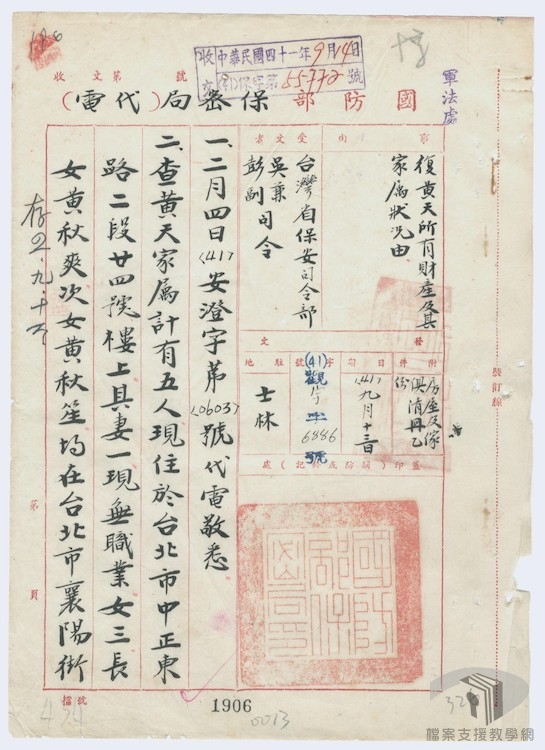 收中華民國四十一年9月14日
文(41)保安字第55772號
軍法處
收文第 號
國防部保密局(代電)
事由
復黃天所有財產及其
家屬狀況由
受文者
台灣省保安司令部
吳兼
彭副司令
發文
附件
房屋及傢
俱清冊乙
份
日期
(41)九月十三日
字號
(41)觀
字
6886
號
駐地
士林
蓋印(關防或鈐記)處
國防
部保
密局
一、二月四日(41)安澄字第(0603)號代電敬悉
二、查黃天家屬計有五人現住於台北市中正東
路二段廿四號樓上其妻一現無職業女三長
女黃秋爽次女黃秋笙均在台北市襄陽街
存四.九.十六
裝訂線
第
頁
檔號
1906
0013
檔案支援教學網